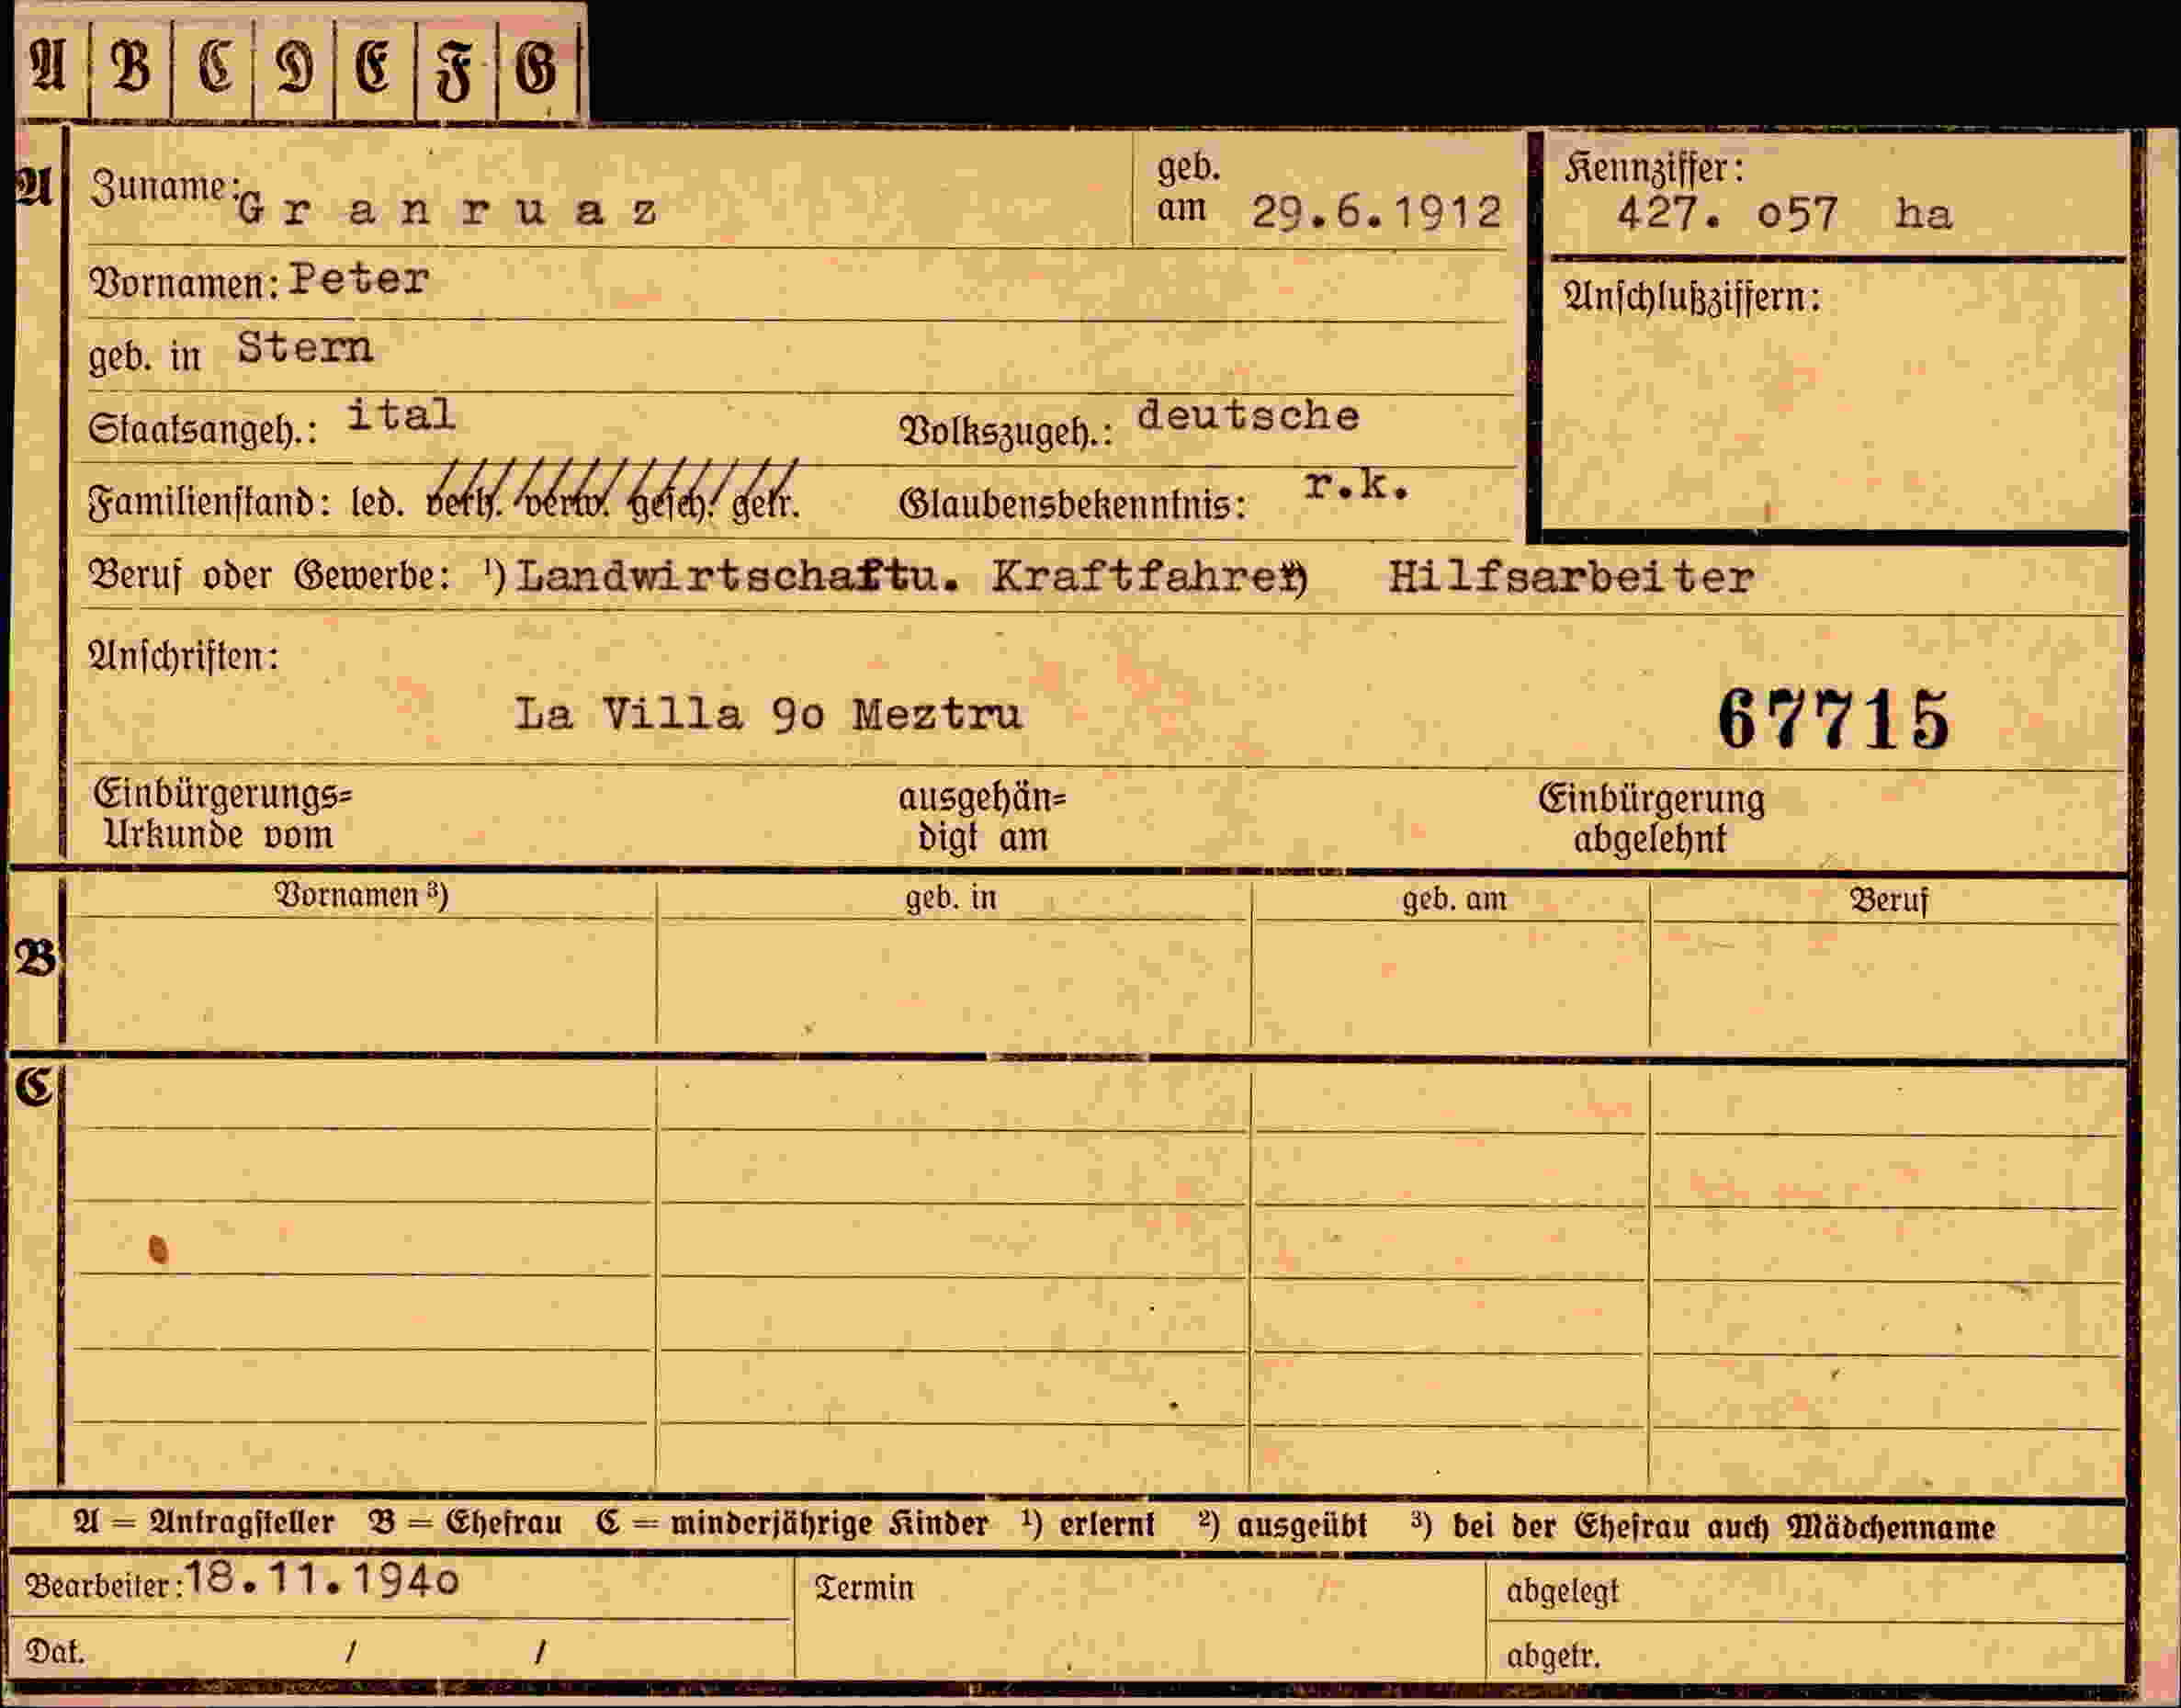 A B C D E F G
A Zuname: Granruaz geb. am 29.6.1912 Kennziffer: 427. o57 ha
Vornamen: Peter Anschlußziffern:
geb. in Stern
Staatsangeh.: ital Volkszugeh.: deutsche
Familienstand: led. verh. verw. gesch. getr. Glaubensbekenntnis: r.k.
Beruf oder Gewerbe: ¹) Landwirtschaftu. Kraftfahrer ²) Hilfsarbeiter
Anschriften:
La Villa 9o Meztru 67715
Einbürgerungs= ausgehän= Einbürgerung
Urkunde vom digt am abgelehnt
Vornamen ³) geb. in geb. am Beruf
B
C
A = Antragsteller B = Ehefrau C = minderjährige Kinder ¹) erlernt ²) ausgeübt ³) bei der Ehefrau auch Mädchenname
Bearbeiter: 18.11.194o Termin abgelegt
Dat. / / abgetr.